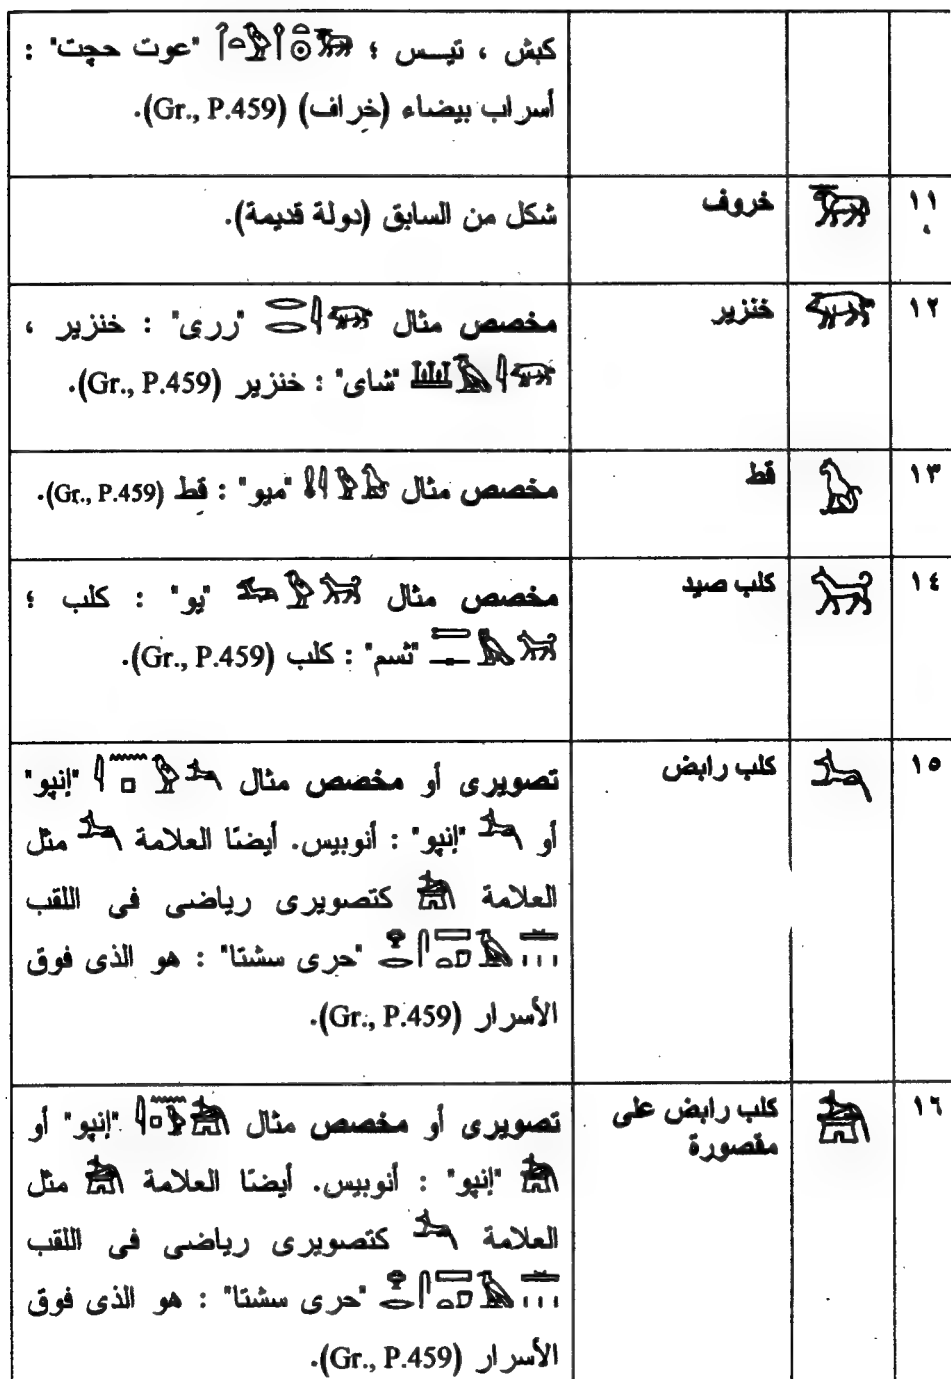 كبش ، تيس ؛ "عوت حجت" :
أسراب بيضاء (خراف) (Gr., P.459).
١١ خروف شكل من السابق (دولة قديمة).
١٢ خنزير مخصص مثال "ررى" : خنزير ،
"شاى" : خنزير (Gr., P.459).
١٣ قط مخصص مثال "ميو" : قط (Gr., P.459).
١٤ كلب صيد مخصص مثال "يو" : كلب ؛
"ثسم" : كلب (Gr., P.459).
١٥ كلب رابض تصويرى أو مخصص مثال "إنپو"
أو "إنپو" : أنوبيس. أيضًا العلامة مثل
العلامة كتصويرى رياضى فى اللقب
"حرى سشتا" : هو الذى فوق
الأسرار (Gr., P.459).
١٦ كلب رابض على تصويرى أو مخصص مثال "إنپو" أو
مقصورة "إنپو" : أنوبيس. أيضًا العلامة مثل
العلامة كتصويرى رياضى فى اللقب
"حرى سشتا" : هو الذى فوق
الأسرار (Gr., P.459).